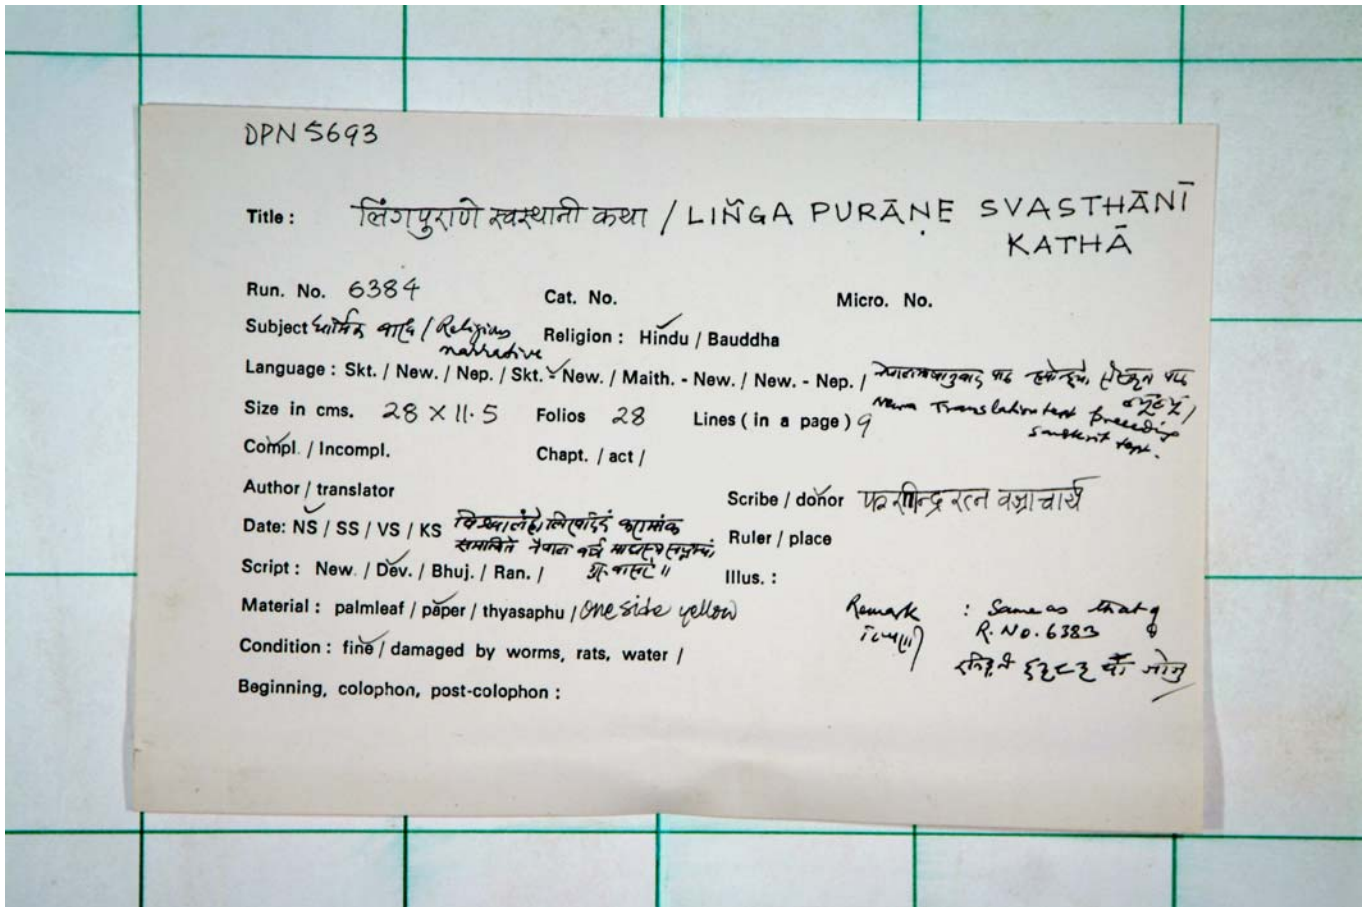 DPN 5693
Title : लिंगपुराणे स्वस्थानी कथा / LIṄGA PURĀṆE SVASTHĀNĪ
KATHĀ
Run. No. 6384 Cat. No. Micro. No.
Subject धार्मिक / Religious Religion : Hindu / Bauddha
narrative
Language : Skt. / New. / Nep. / Skt. - New. / Maith. - New. / New. - Nep. /
Newa Translation text preceding
Sanskrit text.
Size in cms. 28 × 11.5 Folios 28 Lines ( in a page ) 9
Compl. / Incompl. Chapt. / act /
Author / translator Scribe / donor रत्न वज्राचार्य
Date: NS / SS / VS / KS Ruler / place
Script : New. / Dev. / Bhuj. / Ran. / Illus. :
Material : palmleaf / paper / thyasaphu / one side yellow Remark : Same as that of
R. No. 6383
Condition : fine / damaged by worms, rats, water / ६३८३
Beginning, colophon, post-colophon :